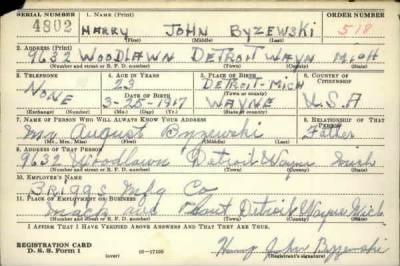 SERIAL NUMBER 1. NAME (Print) ORDER NUMBER
4802 HARRY JOHN BYZEWSKI 518
(First) (Middle) (Last)
2. ADDRESS (Print)
9632 WOODLAWN DETROIT WAYN MICH
(Number and street or R. F. D. number) (Town) (County) (State)
3. TELEPHONE 4. AGE IN YEARS 5. PLACE OF BIRTH 6. COUNTRY OF CITIZENSHIP
NONE 23 DETROIT-MICH
DATE OF BIRTH (Town)
3-25-1917 WAYNE U.S.A
(Exchange) (Number) (Mo.) (Day) (Yr.) (State)
7. NAME OF PERSON WHO WILL ALWAYS KNOW YOUR ADDRESS 8. RELATIONSHIP OF THAT PERSON
Mr August Byzewski Father
(Mr., Mrs., Miss) (First) (Middle) (Last)
9. ADDRESS OF THAT PERSON
9632 Woodlawn Detroit Wayne Mich
(Number and street or R. F. D. number) (Town) (County) (State)
10. EMPLOYER'S NAME
BRIGGS Mfg Co
11. PLACE OF EMPLOYMENT OR BUSINESS
Mack ave Detroit Wayne Mich
(Number and street or R. F. D. number) (Town) (County) (State)
I AFFIRM THAT I HAVE VERIFIED ABOVE ANSWERS AND THAT THEY ARE TRUE.
REGISTRATION CARD
D. S. S. Form 1 (over) Harry John Byzewski
(Registrant's signature)